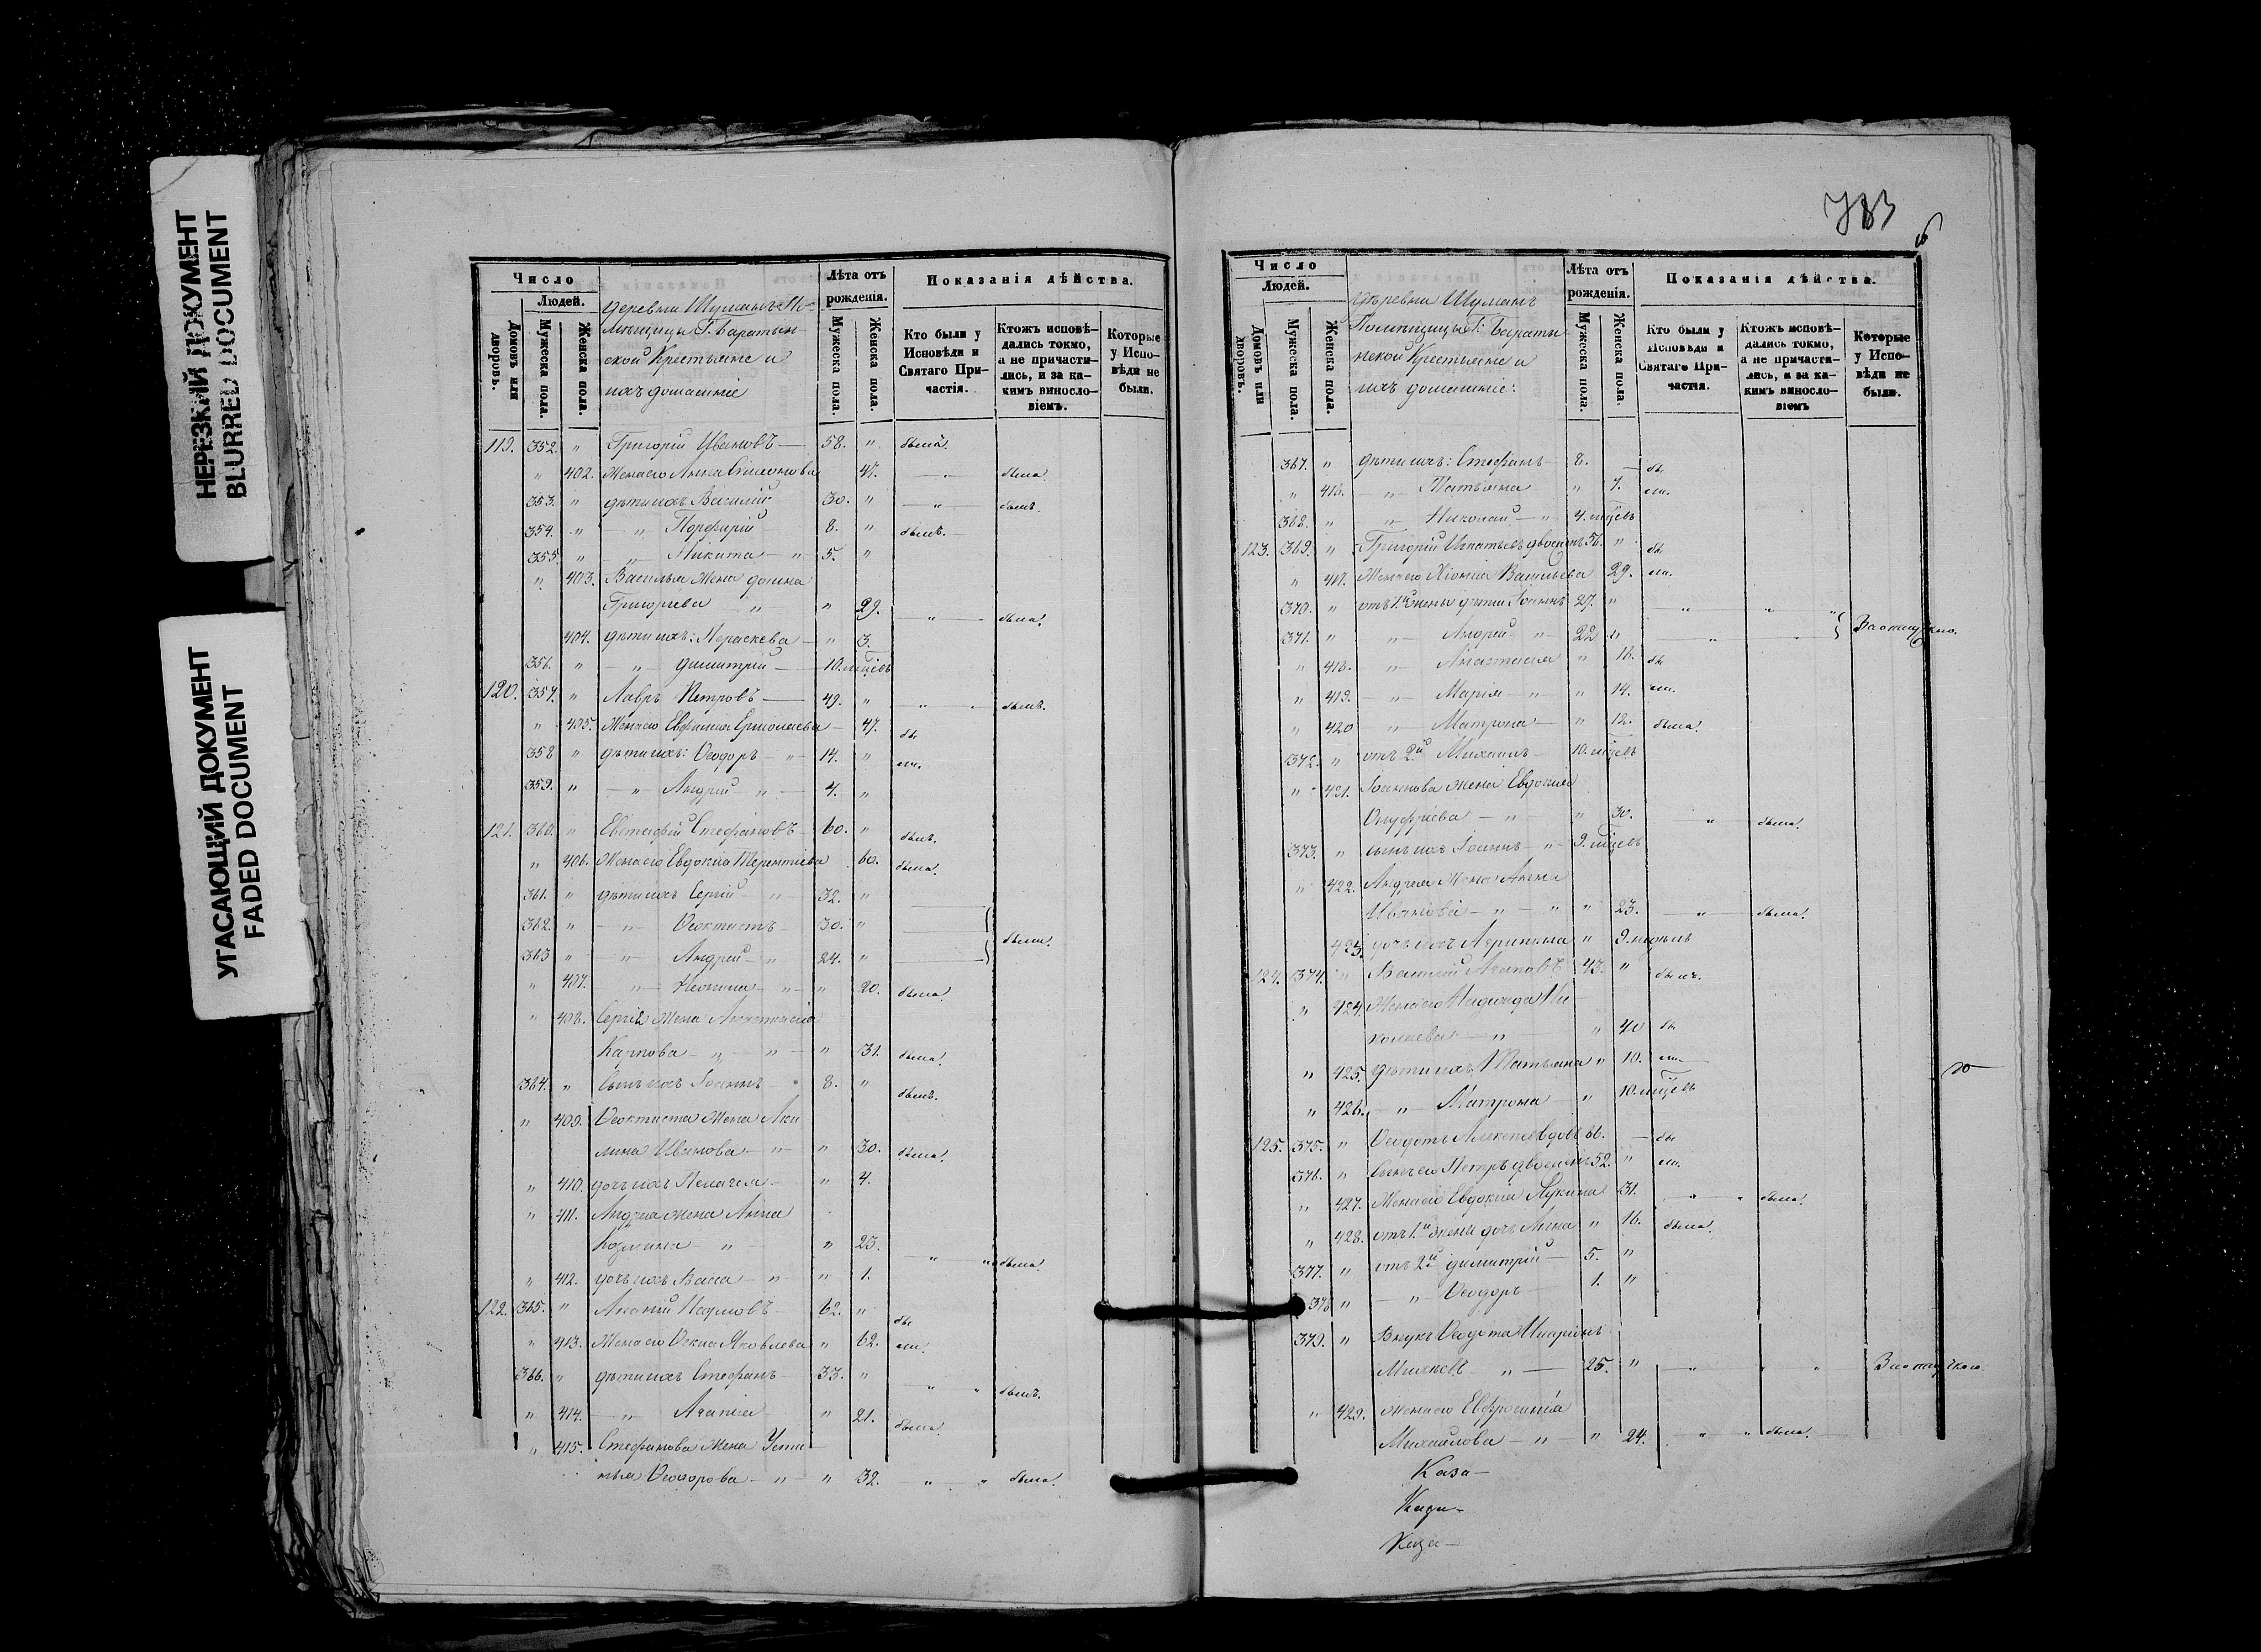 НЕРЕЗКИЙ ДОКУМЕНТ
BLURRED DOCUMENT
УГАСАЮЩИЙ ДОКУМЕНТ
FADED DOCUMENT
Число
Людей.
Домовъ или дворовъ.
Мужеска пола.
Женска пола.
деревни Шуманъ По-
мѣщицы Г. Баратын-
ской Крестьяне и
ихъ домашніе
Лѣта отъ рожденія.
Мужеска пола.
Женска пола.
Показанія дѣйства.
Кто были у Исповѣди и Святаго Причастія.
Ктожъ исповѣдались токмо, а не причастились, и за какимъ винословіемъ.
Которые у Исповѣди не были.
119. 352. " Григорій Ивановъ — 58. " былъ
" 402. Жена его Анна Симеонова 47. былa
353. " дѣти ихъ Василій 30. " " былъ.
354. " " Порфирій 8. " былъ.
355. " " Никита — " 5. "
" 403. Василья жена Домна
Григорьева " " 29. " была.
404. дѣти ихъ: Параскева — " 3.
356. " — " Димитрій — 10. мцѣвъ
120. 357. " Лавръ Петровъ — 49. " " былъ.
" 405. Жена его Евфимія Ермолаева — 47. бы
358 " дѣти ихъ: Ѳеодоръ — " 14. " ли.
359. " — " Андрей — " 4. "
121. 360. " Евстафій Стефановъ 60. " былъ.
" 406. Жена его Евдокія Терентіева 60. была.
361. " дѣти ихъ Сергій — " 32. "
362. " — " Ѳеоктистъ 30. "
363 " " Андрей — " 24. " были.
" 407. " — " — " 20. была.
" 408. Сергія жена Анастасія
Карпова — " — " " 31. была.
364. " сынъ ихъ Іоаннъ 8. " былъ.
" 409. Ѳеоктиста жена Аку
лина Иванова — " " 30. была.
" 410. дочь ихъ Пелагея " 4.
" 411. Андрея жена Анна
Козмина — " " 23. " " была.
" 412. дочь ихъ Васса — " " 1.
122. 365. " Ананій Наумовъ 62. " бы
" 413. Жена его Ѳекла Яковлева " 62. ли.
366. " дѣти ихъ Стефанъ 33. " " " былъ.
" 414. — " Агапія " 21. была.
" 415. Стефанова жена Усти
нья Ѳеодорова — " " 32. " " была.
783
Число
Людей.
Домовъ или дворовъ.
Мужеска пола.
Женска пола.
деревни Шуманъ
Помѣщицы Г: Бараты
нской Крестьяне и
ихъ домашніе:
Лѣта отъ рожденія.
Мужеска пола.
Женска пола.
Показанія дѣйства.
Кто были у Исповѣди и Святаго Причастія.
Ктожъ исповѣдались токмо, а не причастились, и за какимъ винословіемъ
Которые у Исповѣди не были.
367. " дѣти ихъ: Стефанъ 8. — бы
" 416. — " Татьяна " 7. ли.
368. " " Николай — " 4. мцѣвъ
123. 369. " Григорій Игнатьевъ двоежен. 56. " бы
" 417. Жена его Хіонія Васильева 29. ли.
370. " отъ 1й жены дѣти Іоаннъ 27. " " " "
371. " " — Андрей — " 22 " " " За отлучкою.
" 418. — " Анастасія " 16. бы
" 419. — " Марія — " " 14. ли.
" 420 " — Матрона " 12. была.
372. " отъ 2й Михаилъ 10. мцѣвъ
" 421. Іоаннова жена Евдокія
Онуфріева — " " 30. " была.
373. " сынъ ихъ Іоаннъ — " 9. мцѣвъ
" 422. Андрея жена Анна
Иванова — " — " " 23. " была.
423. дочь ихъ Агрипина " 9. недѣль
124. 374. " Василій Агаповъ 43. " былъ.
" 424. Жена его Надежда Ни-
колаева — " " 40 бы
" 425. дѣти ихъ Татьяна " 10. ли.
" 426. — " Матрона — " 10. мцѣвъ
125. 375. " Ѳеодотъ Алексѣевъ вдовъ 61. — бы
376. " сынъ его Петръ двоежен. 52. " ли.
" 427. Жена его Евдокія Лукина 31. " " была.
" 428. отъ 1й жены дочь Анна " 16. была.
377. " отъ 2й Димитрій 5. "
378 " — " Ѳеодоръ 1. "
379. " Внукъ Ѳеодота Иларіонъ
" — 25. " " " " За отлучкою.
" 429. жена его Евфросинія
Михайлова — " " 24. " " была.
Каза-
Каза-
Каза-